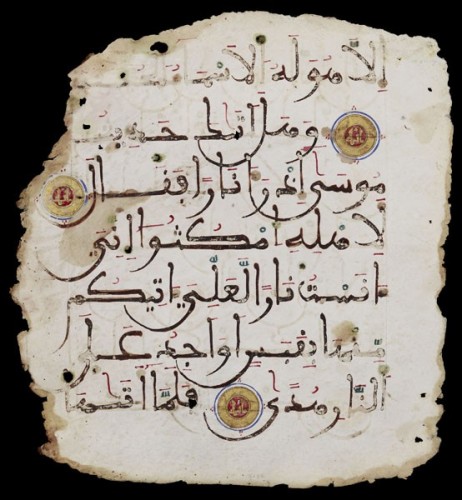 الا هو له الاسماء
وهل اتيك حديث
موسى اذ را نارا فقال
لاهله امكثوا اني
انست نارا لعلي اتيكم
منها بقبس او اجد على
النار هدى فلما اتيها